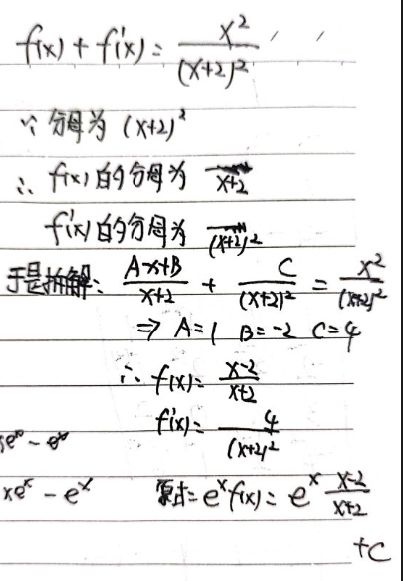 f(x) + f'(x) = x²/(x+2)²
∵ 分母为 (x+2)²
∴ f(x)的分母为 —/x+2
f'(x)的分母为 —/(x+2)²
于是拆解: Ax+B/x+2 + C/(x+2)² = x²/(x+2)²
⇒ A=1 B=-2 C=4
∴ f(x) = x-2/x+2
f'(x) = 4/(x+2)²
xeˣ - eˣ 原式=eˣf(x) = eˣ x-2/x+2
+C